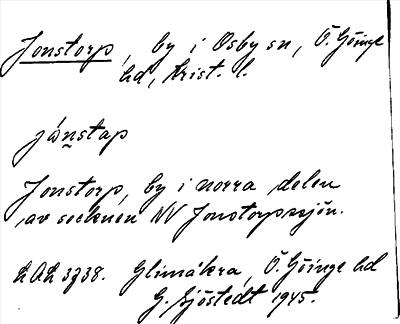 Jonstorp, by i Osby sn, Ö. Göinge
hd, Krist. l.
jånstap
Jonstorp, by i norra delen
av socknen NV Jonstorpssjön.
LAL 3738. Glimåkra, Ö. Göinge hd
G. Sjöstedt 1945.